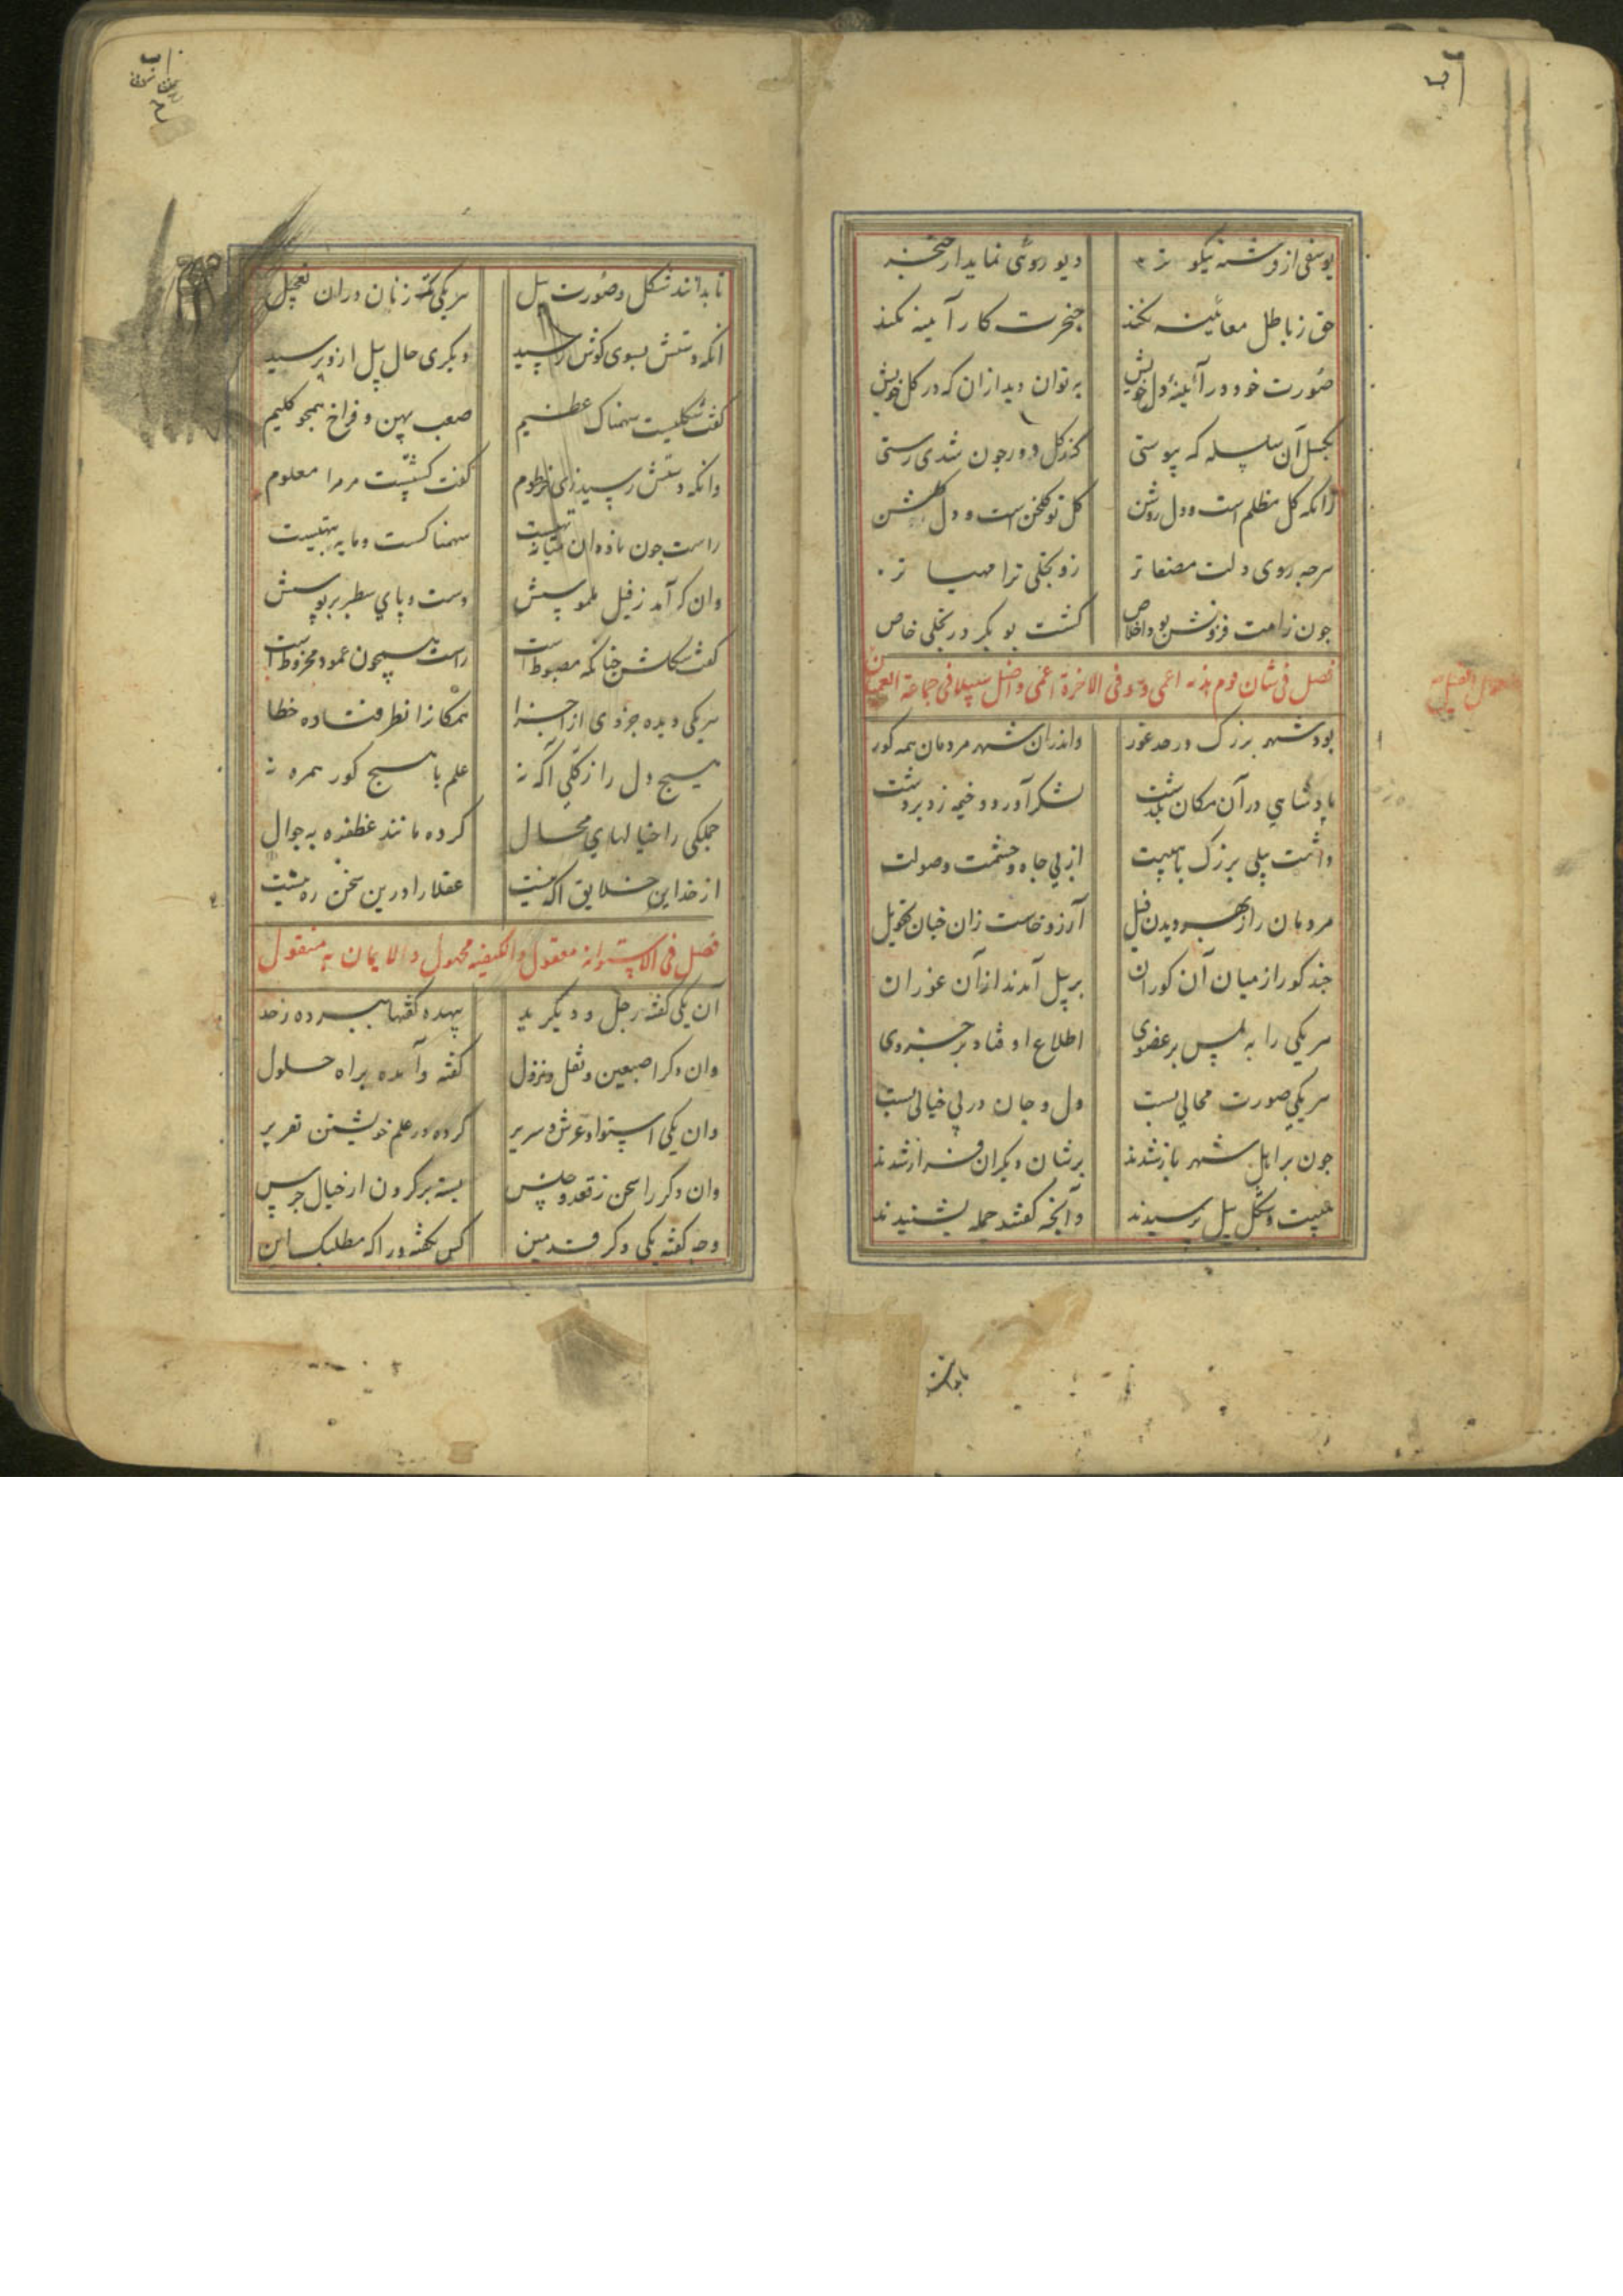 یوسفی از فرشته نیکو تر
دیو رویی نماید از خنجر
حق ز باطل معاینه نکند
خنجرت کار آینه نکند
صورت خود در آینه دل خویش
به توان دید از آن که در گل خویش
بگسل آن سلسله که پیوستی
کز گل دور چون شدی رستی
زانکه گل مظلم است و دل روشن
گل تو گلخن است و دل گلشن
هرچه روی دلت مصفا تر
زو تجلی ترا مهیا تر
چون ز امت فزونش بود اخلاص
گشت بو بکر در تجلی خاص
فصل فی شان قوم هذه اعمی وهو فی الاخرة اعمی واضل سبیلا فی جماعة العمیان
بود شهر بزرگ در حد غور
واندران شهر مردمان همه کور
پادشاهی در آن مکان بگذشت
لشکر آورد و خیمه زد بر دشت
داشت پیلی بزرگ با هیبت
از پی جاه و حشمت و صولت
مردمان را ز بهر دیدن فیل
آرزو خاست زان چنان تهویل
چند کور از میان آن کوران
بر پیل آمدند از آن عوران
هر یکی را به لمس بر عضوی
اطلاع اوفتاد بر جزوی
هر یکی صورت محالی بست
دل و جان در پی خیالی بست
چون بر اهل شهر باز شدند
برشان دیگران فراز شدند
هیبت و شکل پیل پرسیدند
وآنچه گفتند جمله بشنیدند
تا بدانند شکل و صورت پیل
هر یکی تازنان در آن تعجیل
آنکه دستش بسوی گوش رسید
دیگری حال پیل ازو پرسید
گفت شکلیست سهمناک عظیم
صعب پهن و فراخ همچو گلیم
وانکه دستش رسید زی خرطوم
گفت گشتست مر مرا معلوم
راست چون ناودان میانه تهیست
سهمناکست و مایه تبهیست
وان کرآمد ز فیل ملموسش
دست و پای سطبر بر بوسش
گفت شکلش چنانکه مضبوط است
راست همچون عمود مخروط است
هر یکی دیده جزوی از اجزا
همگانرا نظر فتاده خطا
هیچ دل را ز کلی آگه نه
علم با هیچ کور همره نه
جملگی را خیالهای محال
کرده مانند غطفره به جوال
از خدا این خلایق آگه نیست
عقلا را درین سخن ره نیست
فصل فی الاستوانه معقول والکیفیه مجهول والایمان به منقول
آن یکی گفته رجل و دیگر ید
بیهده گفتها ببرده ز حد
وان دگر اصبعین و نقل و نزول
گفته و آمده براه حلول
وان یکی استوا و عرش و سریر
کرده در علم خویشتن تقریر
وان دگر را سخن ز قعد و جلس
بسته بر گردن از خیال جرس
وجه گفته یکی دگر قدمین
کس نگفته ورا که مطلبک این